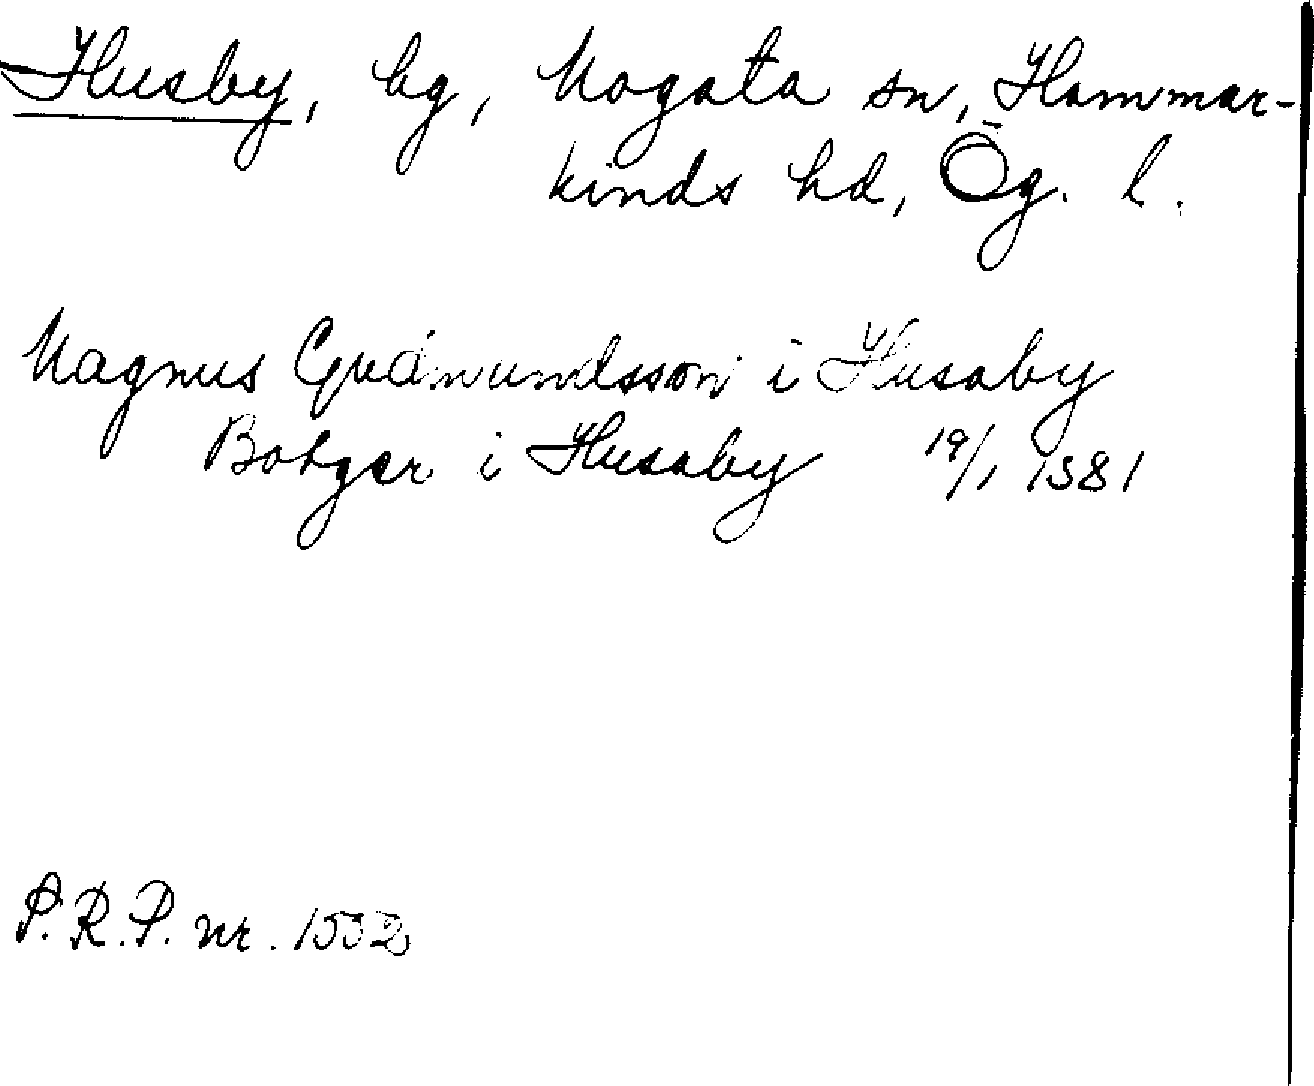 Husby, bg, Mogata sn, Hammar-
kinds hd, Ög. l.
Magnus Gudmundsson i Husaby
Botger i Husaby 19/1 1381
P.R.P. nr. 1532